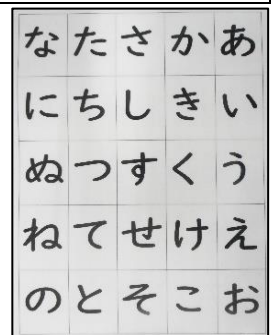 な た さ か あ
に ち し き い
ぬ つ す く う
ね て せ け え
の と そ こ お